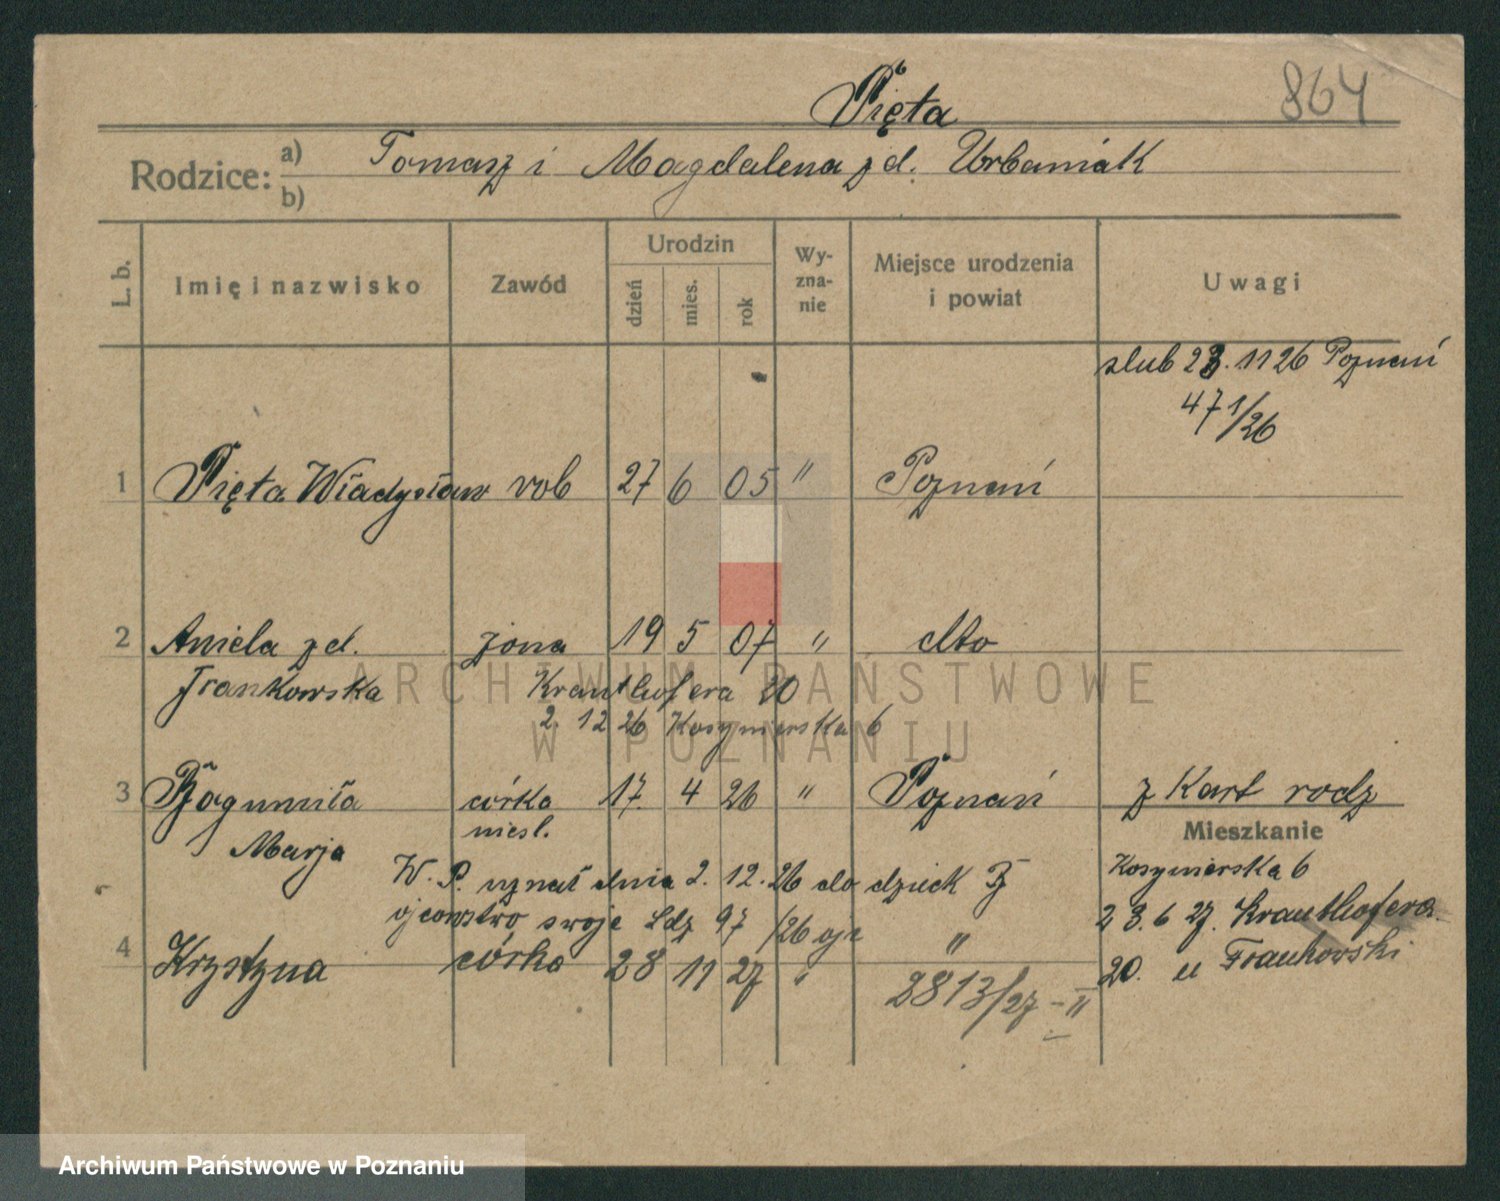 Pięta
864
Rodzice: a) b) Tomasz i Magdalena z d. Urbaniak
L. b. Imię i nazwisko Zawód Urodzin dzień mies. rok Wy-zna-nie Miejsce urodzenia i powiat Uwagi
slub 23. 11 26 Poznań
471/26
1 Pięta Władysław rob 27 6 05 " Poznań
2 Aniela z d. żona 19 5 07 " dto
Frankowska Krauthofera 20
2. 12 26 Kosynierska 6
3 Bogumiła córka 17. 4 26 " Poznań z Kart rodz
niesl.
Marja
Mieszkanie
W. P. uznał dnia 2. 12. 26 do dzieck B
Kosynierska 6
ojcowstwo swoje Ldz 97/26
23. 6 27. Krauthofera
4 Krystyna córka 28 11 27 " "
20. u Frankowski
2813/27 - II
ARCHIWUM PAŃSTWOWE
W POZNANIU
Archiwum Państwowe w Poznaniu